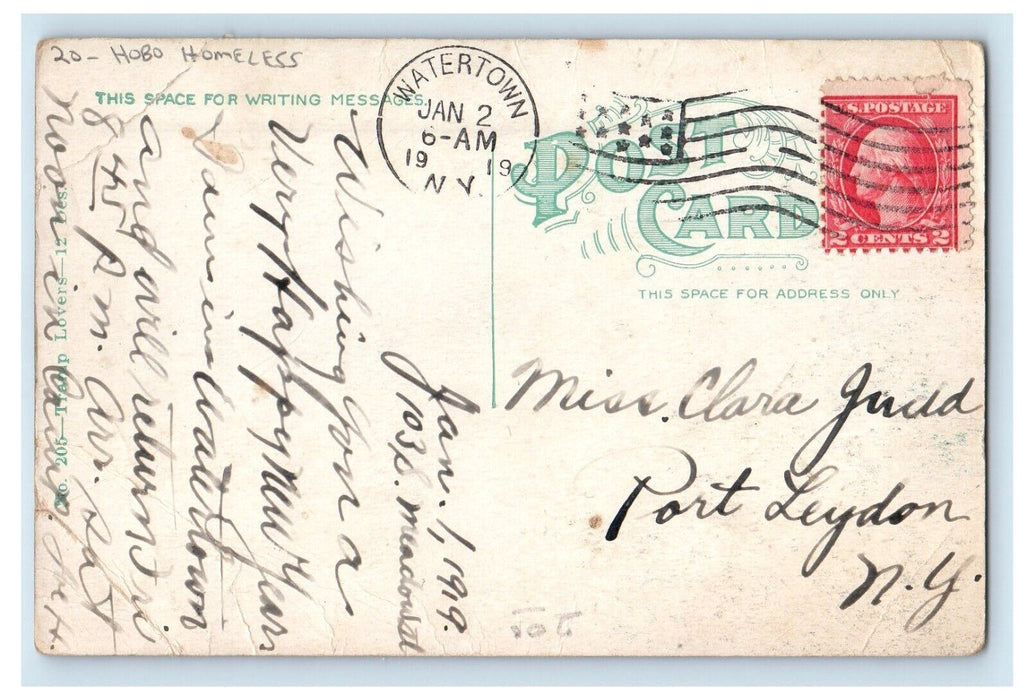 20- HOBO HOMELESS
THIS SPACE FOR WRITING MESSAGES
WATERTOWN
JAN 2
6-AM
19 19
N.Y.
POST
CARD
U.S. POSTAGE
2 CENTS 2
THIS SPACE FOR ADDRESS ONLY
Miss. Clara Judd
Port Leydon
N.Y.
Jan. 1, 1919.
103 S. Meadow St
Wishing you a
Very Happy New Year
I am in Watertown
and will return Fri
8 45 A m. Arr. Sat
noon in
No. 205—Tramp Lovers—12 Des.
205